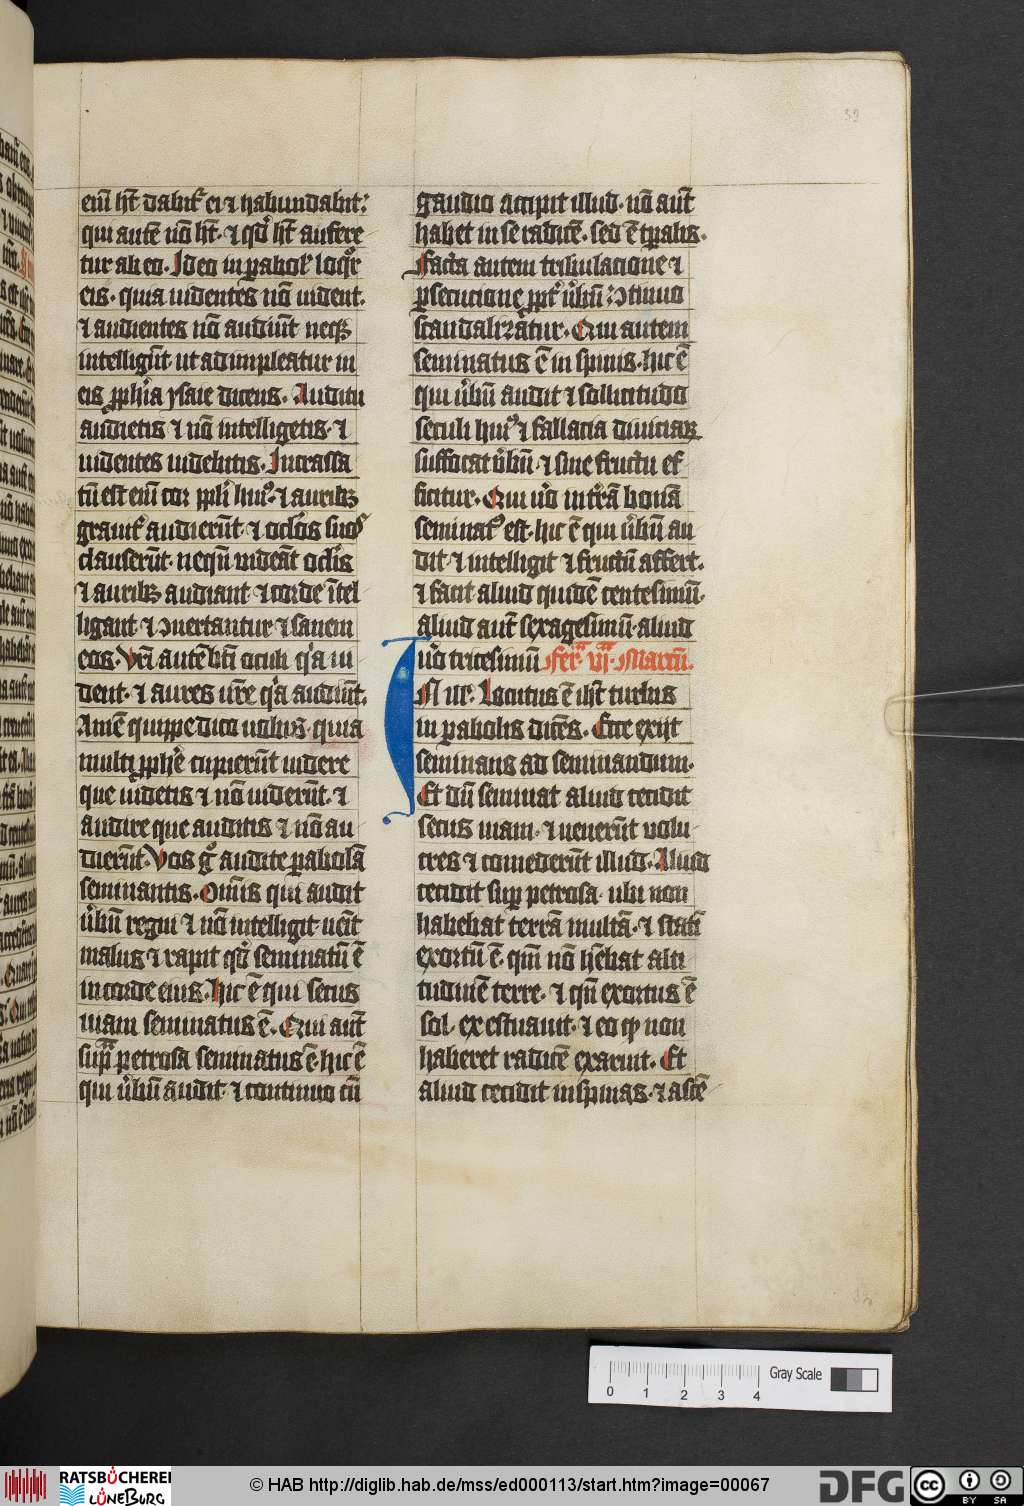 eni͞m ht͞ dabit᷒ ei ⁊ habundabit:
qui aute͞ no͞ ht͞ · ⁊ qd͛ ht͞ aufere
tur ab eo. Ideo in ꝑabol᷒ loqr͛
eis · quia uidentes no͞ uident.
⁊ audientes no͞ audiu͞t neqꝫ
intelligu͞t ut adimpleatur in
eis ꝓph͛ia ysaie dicens. Auditu
audietis ⁊ no͞ intelligetis · ⁊
uidentes uidebitis. Incrassa
tu͞ est eni͞m cor ppl͛i huiꝰ · ⁊ auribꝫ
grauit᷒ audieru͞t · ⁊ oclo͛s suos
clauseru͞t · nequ͞ uidea͞t ocl͛is
⁊ auribꝫ audiant ⁊ corde i͞tel
ligant ⁊ ꝯuertantur ⁊ sanem
eos. Vr͞i aute͞ bt͞i oculi qͥa ui
dent · ⁊ aures ur͞e qͥa audiu͞t.
Ame͞ quippe dico uobis · quia
multi ꝓph͛e cupieru͞t uidere
que uidetis ⁊ no͞ uideru͞t · ⁊
audire que auditis ⁊ no͞ au
dieru͞t. Vos gͦ audite ꝑabola͞
seminantis. Omi͞s qui audit
u͛bu͞ regni ⁊ no͞ intelligit · ueni͞t
malus ⁊ rapit qd͛ seminatu͞ e͞
in corde eius. Hic e͞ qui secus
uiam seminatus e͞. Qui aut͞
supᷓ petrosa seminatus e͞ · hic e͞
qui u͛bu͞ audit · ⁊ continuo cu͞
gaudio accipit illud · no͞ aut͞
habet in se radice͞ · sed e͞ tꝑalis.
Facta autem tribulacione ⁊
ꝑsecucione ꝓpt᷒ u͛bu͞ · ꝯtinuo
scandaliza͞tur. Qui autem
seminatus e͞ in spinis · hic e͞
qui u͛bu͞ audit ⁊ sollicitudo
seculi huiꝰ ⁊ fallacia diuiciaꝝ
suffocat u͛bu͞ · ⁊ sine fructu ef
ficitur. Qui uͦo in terra͞ bona͞
seminatꝰ est · hic e͞ qui u͛bu͞ au
dit · ⁊ intelligit ⁊ fructu͞ affert.
⁊ facit aliud quide͞ centesimu͞ ·
aliud aut͞ sexagesimu͞ · aliud
uͦo tricesimu͞ Ferᷓ viᷓ · Marcu͞.
IN ill᷒. Locutus e͞ ih͞c turbis
in ꝑabolis dice͞s. Ecce exijt
seminans ad seminandum.
Et du͞ seminat aliud cecidit
secus uiam · ⁊ ueneru͞t uolu
cres ⁊ comederu͞t illud. Aliud
cecidit suꝑ petrosa · ubi non
habebat terra͞ multa͞ · ⁊ stati͞
exortu͞ e͞ · qm͞ no͞ he͞bat alti
tudine͞ terre · ⁊ qn͞ exortus e͞
sol · ex estuauit · ⁊ eo ꝙ non
haberet radice͞ exaruit. Et
aliud cecidit in spinas · ⁊ asce͞
39
0 1 2 3 4 Gray Scale
RATSBÜCHEREI
LÜNEBURG
© HAB http://diglib.hab.de/mss/ed000113/start.htm?image=00067
DFG
cc BY SA